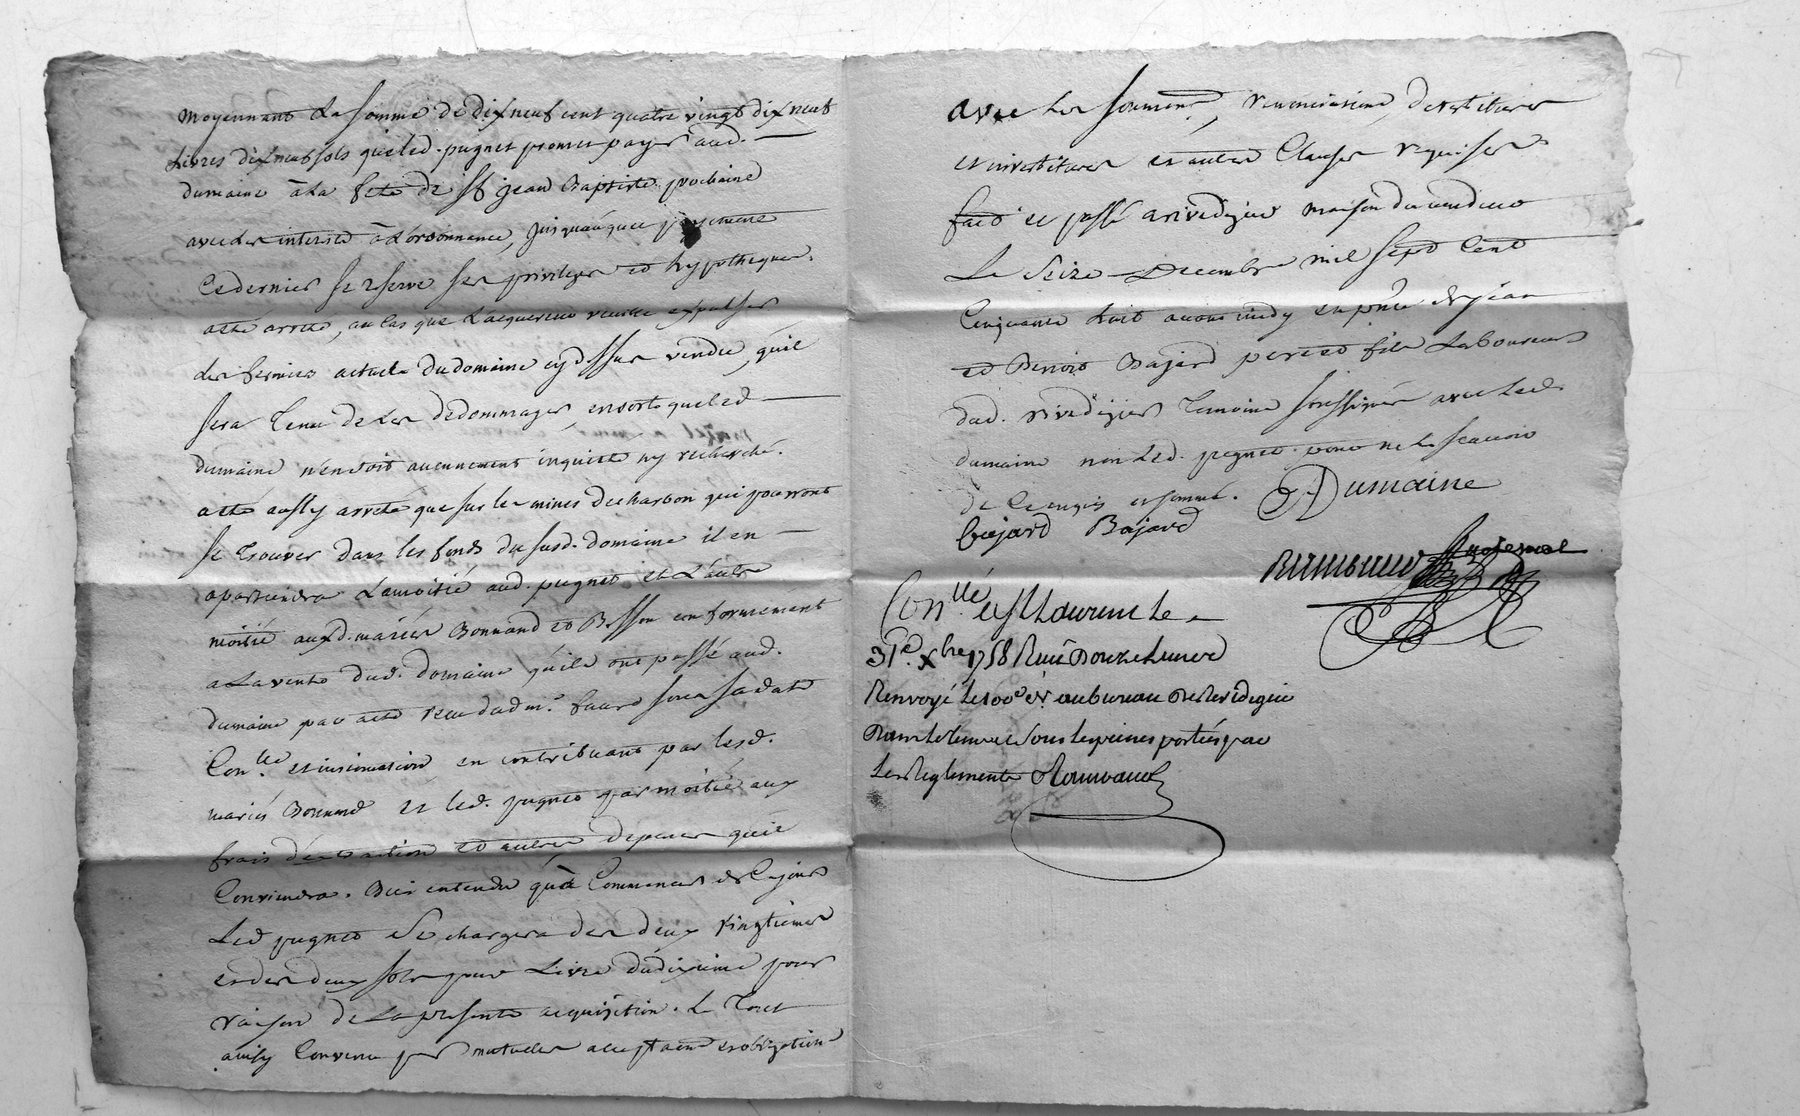 moyennant la somme de dix neuf cent quatre vingt dix neuf
livres dix neuf sols que led. pugnet promet payer aud.
dumaine à la fete de St jean Baptiste prochaine
avec les interets à l'ordonnance, jusqu'auquel payement
ce dernier se reserve ses privileges et hypotheques.
a eté arreté, au cas que l'acquereur veuille expulser
les fermiers actuels du domaine cy dessus vendu, qu'il
sera tenu de les dedommager, ensorte que led
dumaine n'en soit aucunement inquieté ny recherché.
a eté aussy arreté que sur les mines de charbon qui pourront
se trouver dans les fonds du susd. domaine il en
apartiendra la moitié aud. pugnet et l'autre
moitié auxd. mariés Bonnand et Besson conformement
a la vente dud. domaine qu'ils ont passé aud.
dumaine par acte reçu dud me. faure sous sa date
Con.llé et insinuation, en contribuant par lesd.
mariés Bonnand et led. pugnet par moitié aux
frais d'extraction et autres depenses qu'il
conviendra. Bien entendu qu'à commencer de ce jour
led pugnet se chargera des deux vingtiemes
et des deux sols pour livre du dixieme pour
raison de la presente acquisition. le tout
ainsy convenu par mutuelles acceptations et obligations
avec les serments, renonciations, devestitures
et investitures et autres clauses requises
fait et passé a rivedegier maison du vendeur
le seize decembre mil sept cent
cinquante huit avant midy en pnce de jean
et Benoit Bajard pere et fils laboureurs
dud. rivedegier temoins soussignés avec led.
dumaine non led. pugnet pour ne le scavoir
de ce enquis et sommé. Dumaine
Bajard Bajard
Con.llé a St Laurent le
31e. Xbre 1758 Reçu Douze livres
Renvoyé le 100e dr. au bureau de Rivedegier
Dans le tems et sous les peines portées par
les Reglements